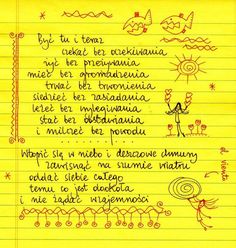 Być tu i teraz
czekać bez oczekiwania
żyć bez przeżywania
mieć bez gromadzenia
trwać bez trwonienia
siedzieć bez zasiadania
leżeć bez wylegiwania
stać bez obstawania
i milczeć bez powodu
Wtopić się w niebo i deszczowe chmury
zawisnąć na szumie wiatru
oddać siebie całego
temu co jest dookoła
i nie żądać wzajemności